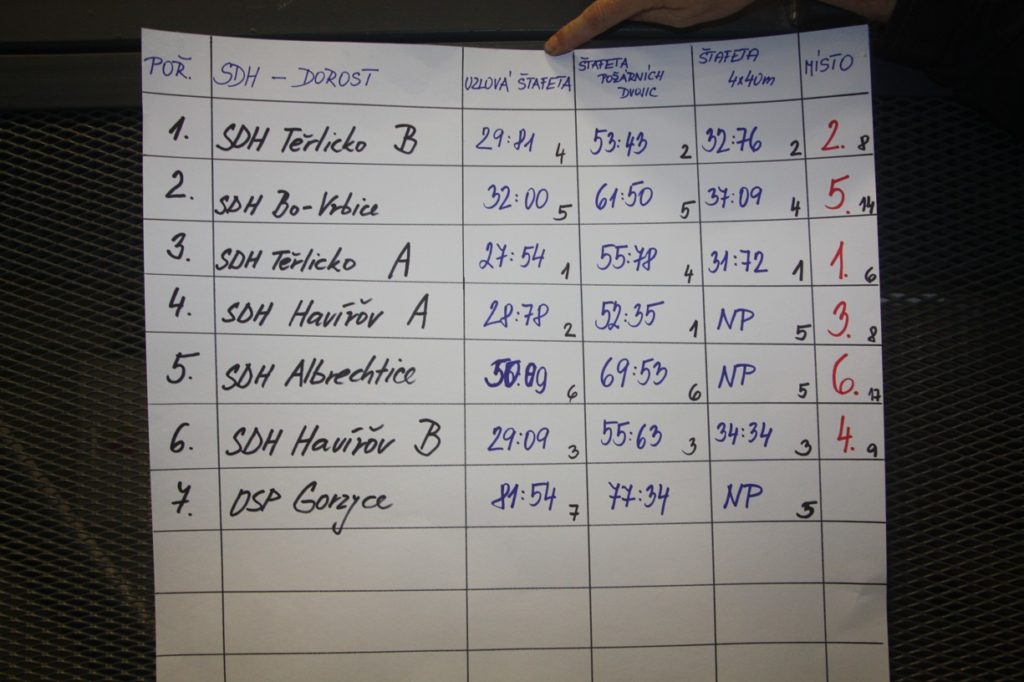 POŘ. SDH – DOROST UZLOVÁ ŠTAFETA ŠTAFETA POŽÁRNÍCH DVOJIC ŠTAFETA 4x40m MÍSTO
1. SDH Těrlicko B 29:81 4 53:43 2 32:76 2 2. 8
2. SDH Bo-Vrbice 32:00 5 61:50 5 37:09 4 5. 14
3. SDH Těrlicko A 27:54 1 55:78 4 31:72 1 1. 6
4. SDH Havířov A 28:78 2 52:35 1 NP 5 3. 8
5. SDH Albrechtice 6 69:53 6 NP 5 6. 17
6. SDH Havířov B 29:09 3 55:63 3 34:34 3 4. 9
7. OSP Gorzyce 81:54 7 77:34 NP 5